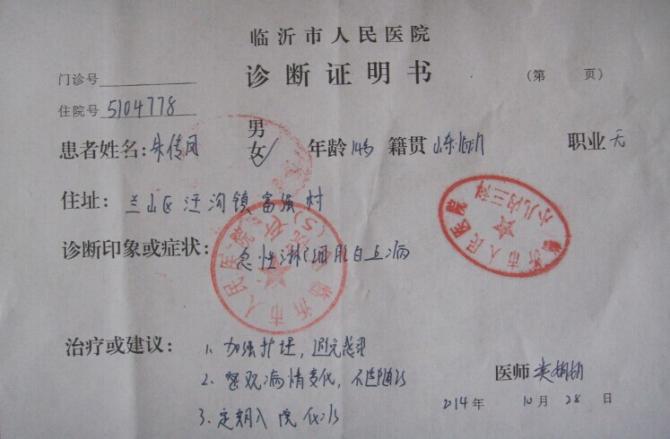 临沂市人民医院
诊断证明书
门诊号
(第 页)
住院号 5104778
患者姓名: 朱传凤 男 女✓ 年龄 14岁 籍贯 山东临沂 职业 无
住址: 兰山区汪沟镇富强村
诊断印象或症状: 急性淋巴细胞白血病
临沂市人民医院
临沂市人民医院 小儿内三科
治疗或建议: 1. 加强护理,避免感染
2. 密观病情变化,不适随诊
3. 定期入院化疗
医师
2014年 10月 28日